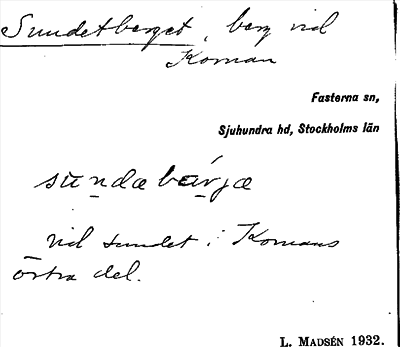 Sundetberget, berg vid
Koman
Fasterna sn,
Sjuhundra hd, Stockholms län
sundabärja
vid sundet i Komans
östra del.
L. MADSÉN 1932.